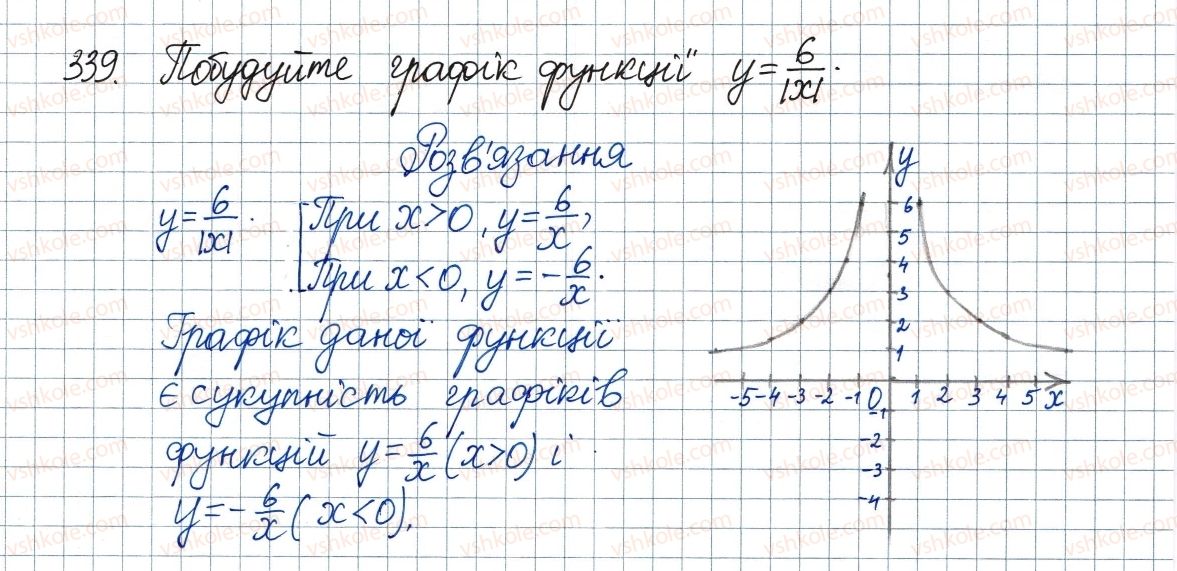 339. Побудуйте графік функції y=6/|x|.
Розв'язання
y=6/|x|. [При x>0, y=6/x,
При x<0, y=-6/x.
Графік даної функції
є сукупність графіків
функцій y=6/x (x>0) і
y=-6/x (x<0).
y
6
5
4
3
2
1
-5 -4 -3 -2 -1 0 1 2 3 4 5 x
-1
-2
-3
-4
vshkole.com